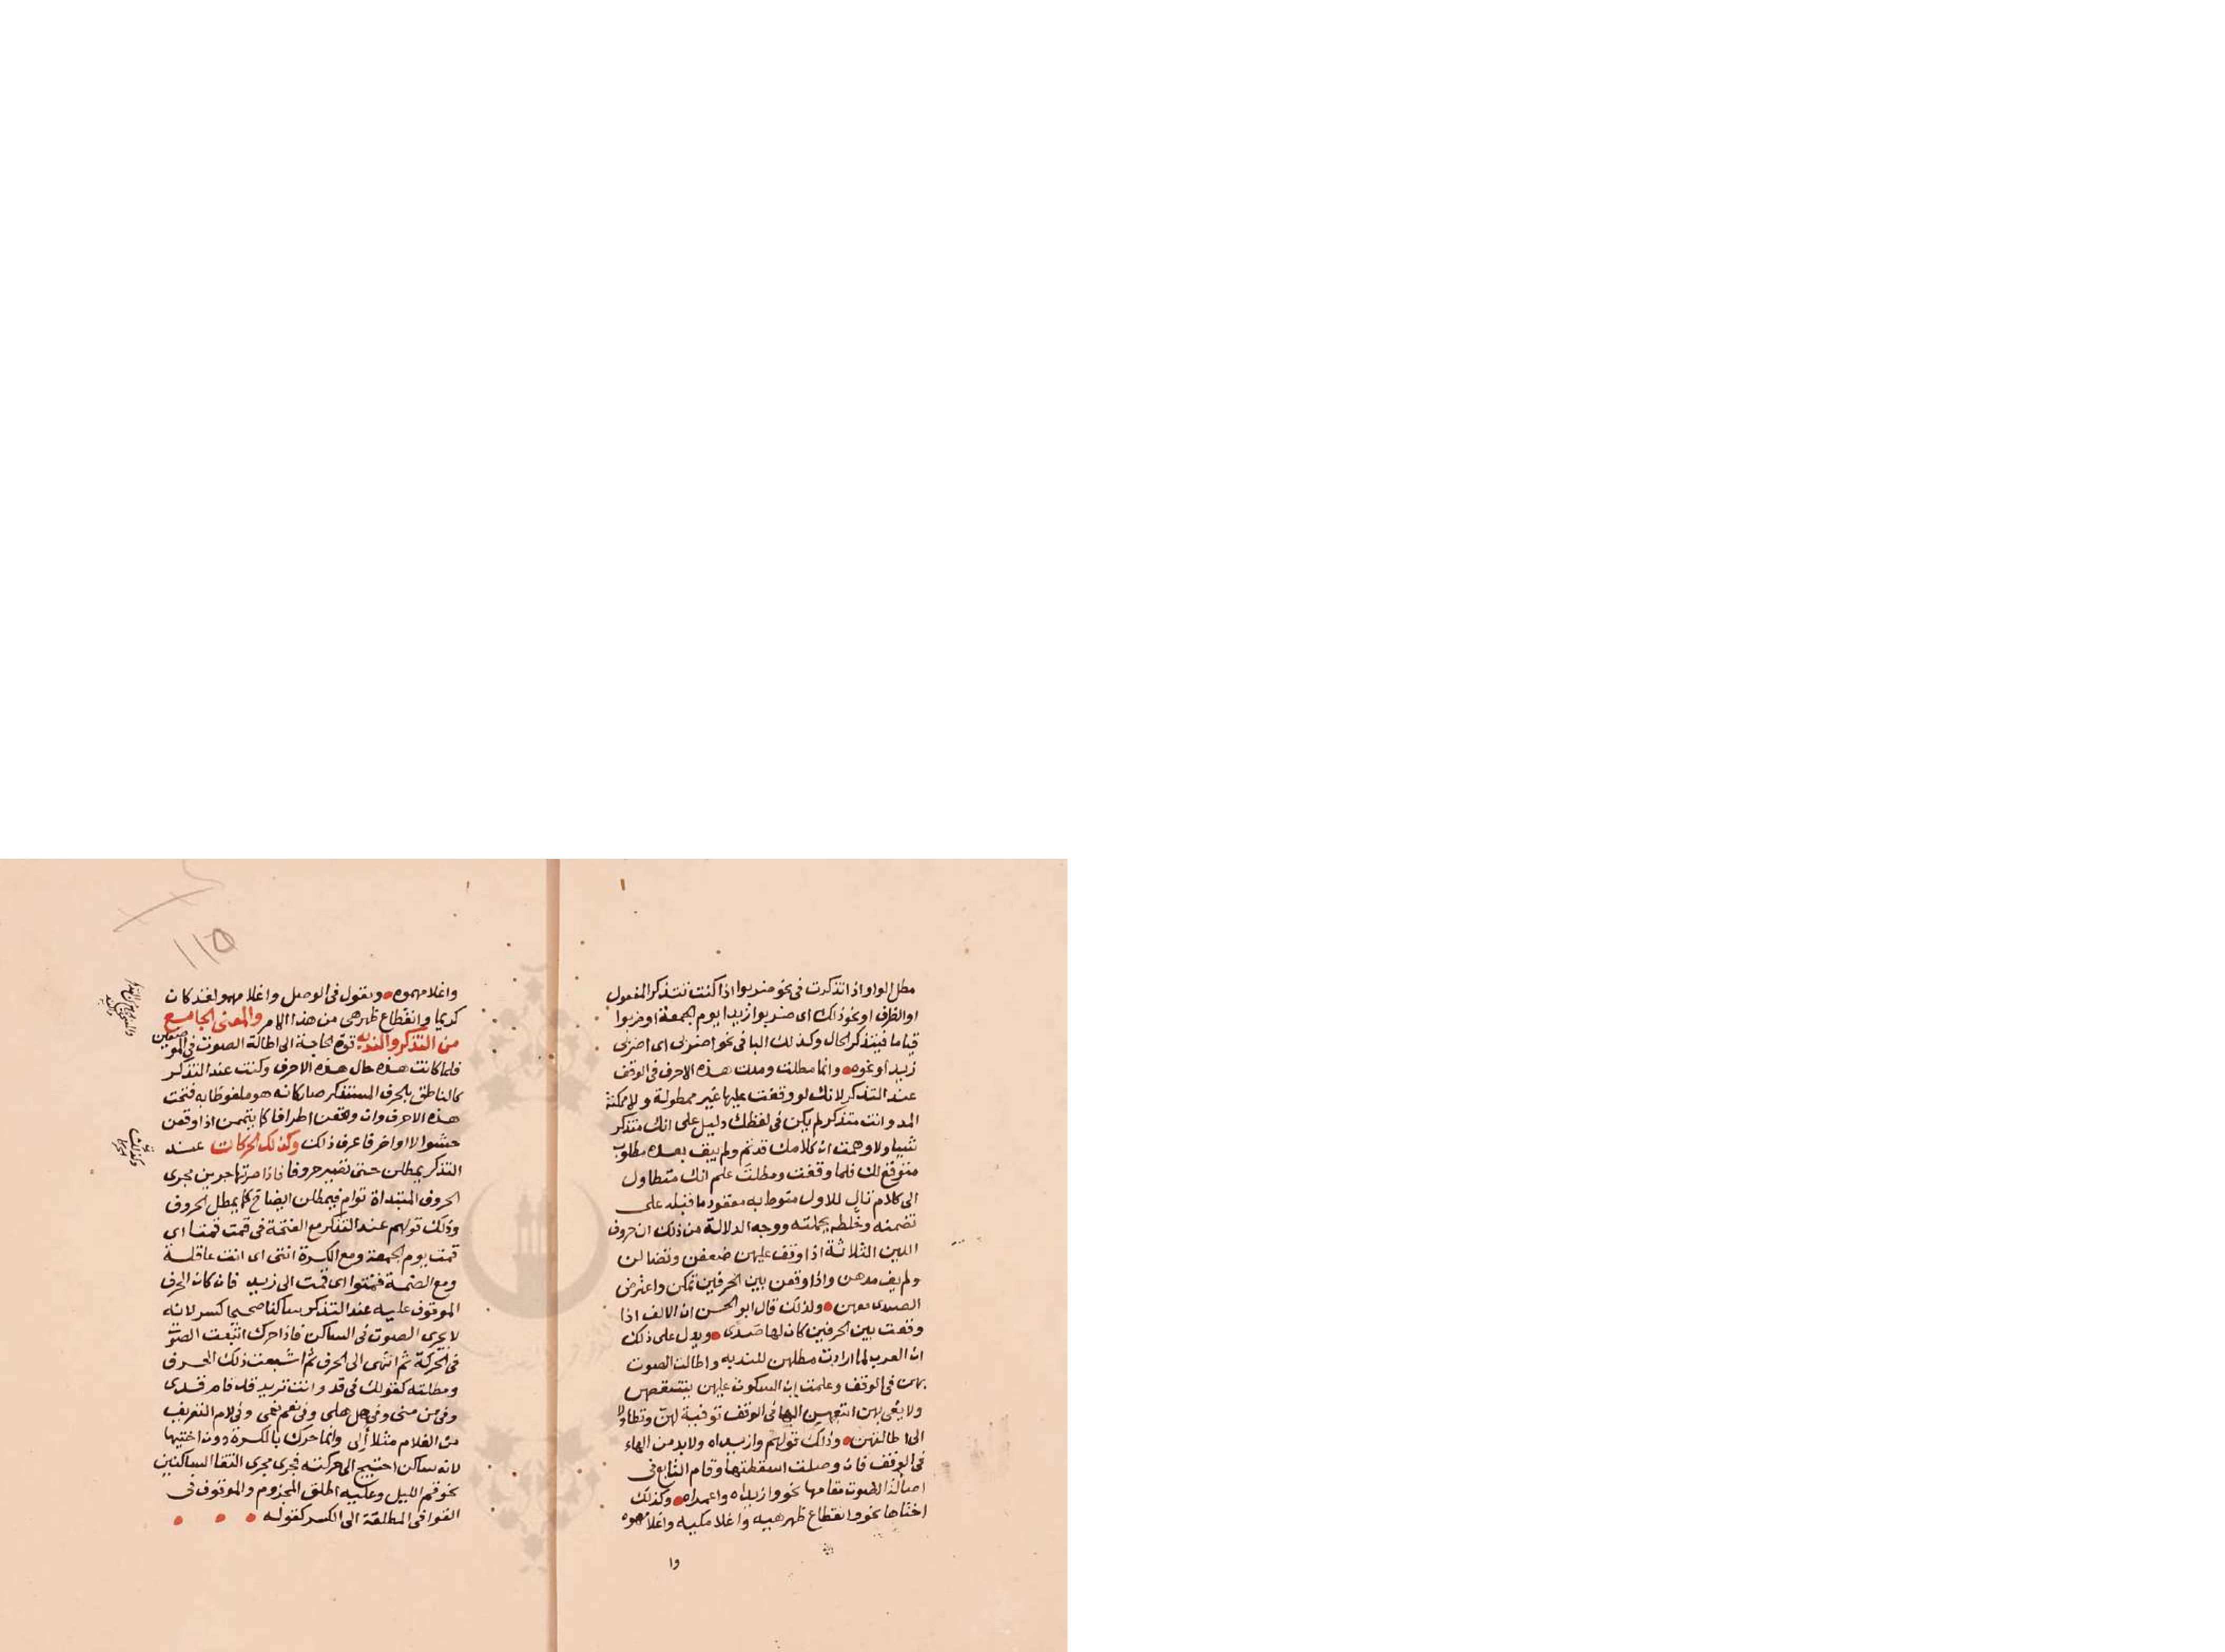 مطل الواو اذا تذكرت فى نحو ضربوا اذا كنت تتذكر المفعول
او الظرف او نحو ذلك اى ضربوا زيدا يوم الجمعة او ضربوا
قياما فيتذكر الحال وكذلك اليا فى نحو اضربى اى اضربى
زيدا ونحوه وانما مطلت ومدت هذه الاحرف فى الوقف
عند التذكر لانك لو وقفت عليها غير ممطولة ولا ممكنة
المد وانت متذكر لم يكن فى لفظك دليل على انك متذكر
شيئا ولاوهمت ان كلامك قد تم ولم يبق بعده مطلوب
متوقع لك فلما وقفت ومطلت علم انك متطاول
الى كلام تال للاول منوط به معقود ما قبله على
تضمنه وخلطه بجملته ووجه الدلالة من ذلك ان حروف
اللين الثلاثة اذا وقف عليهن ضعفن وتضالن
ولم يف مدهن واذا وقعن بين الحرفين تمكن واعترض
الصدى معهن ولذلك قال ابو الحسن ان الالف اذا
وقعت بين الحرفين كان لها صدى ويدل على ذلك
ان العرب لما ارادت مطلهن للندبه واطالت الصوت
بهن فى الوقف وعلمت ان السكون عليهن ينتقصهن
ولا يفى بهن اتبعهن الها فى الوقف توفية لهن وتطاولا
الى اطالتهن وذلك قولهم وازيداه ولا بد من الهاء
فى الوقف فان وصلت اسقطتها وقام التابع فى
اطالة الصوت مقامها نحو وازيداه واعمراه وكذلك
اختاها نحو وانقطاع ظهرهيه واغلامكيه واغلامهوه
وا
١١٥
واغلامهموه وتقول فى الوصل واغلامهو لقد كان
كريما وانقطاع ظهرهى من هذا الامر والمعنى الجامع
من التذكر والندبه قوة الحاجة الى اطالة الصوت فى الموضعين
فلما كانت هذه حال هذه الاحرف وكنت عند التذكر
كالناطق بالحرف المستذكر صار كانه هو ملفوظا به فتمت
هذه الاحرف وان وقعن اطرافا كما يتممن اذا وقعن
حشوا لا اواخر فاعرف ذلك وكذلك الحركات عند
التذكر يمطلن حتى تصير حروفا فاذا صرنها جرين مجرى
الحروف المبتداة توام فيمطلن ايضا ح كما يمطل الحروف
وذلك قولهم عند التذكر مع الفتحة فى قمت قمتا اى
قمت يوم الجمعة ومع الكسرة انتى اى انت عاقلة
ومع الضمة قمتوا اى قمت الى زيد فان كان الحرف
الموقوف عليه عند التذكر ساكنا صحيحا كسر لانه
لا يجرى الصوت فى الساكن فاذا حرك انبعث الصوت
فى الحركة ثم انتهى الى الحرف ثم اشبعت ذلك الحرف
ومطلته كقولك فى قد وانت تريد قد قام قدى
وفى من منى وفى هل هلى وفى نعم نعمى وفى لام التعريف
من الغلام مثلا الى وانما حرك بالكسرة دون اختيها
لانه ساكن احتيج الى حركته فجرى مجرى التقا الساكنين
نحو قم الليل وعليه اطلق المجزوم والموقوف فى
القوافى المطلقة الى الكسر كقوله